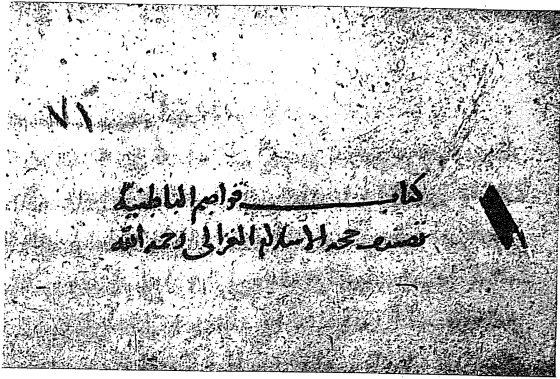 ٧١
كتاب قواصم الباطنية
تصنيف حجة الاسلام الغزالى رحمه الله